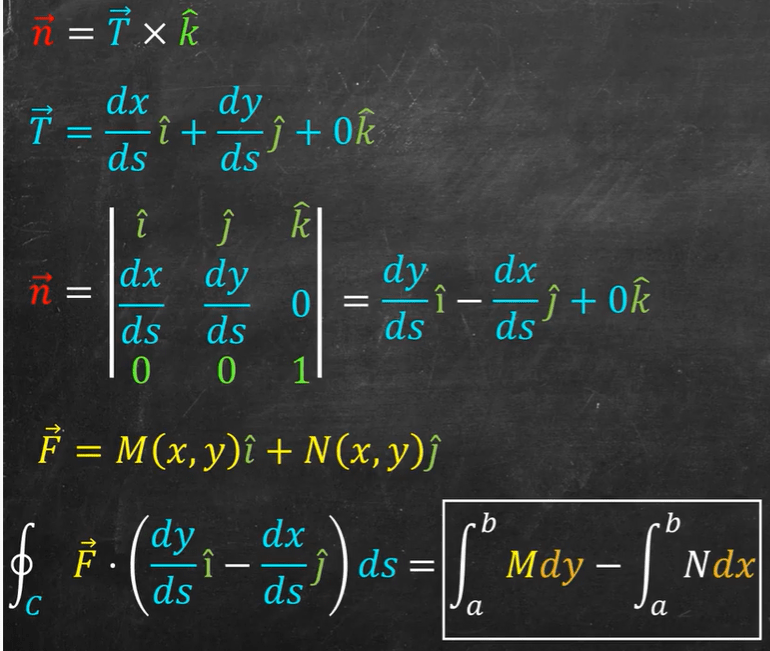 $\vec{n} = \vec{T} \times \hat{k}$
$\vec{T} = \frac{dx}{ds}\hat{\imath} + \frac{dy}{ds}\hat{\jmath} + 0\hat{k}$
$\vec{n} = \begin{vmatrix} \hat{\imath} & \hat{\jmath} & \hat{k} \\ \frac{dx}{ds} & \frac{dy}{ds} & 0 \\ 0 & 0 & 1 \end{vmatrix} = \frac{dy}{ds}\hat{\imath} - \frac{dx}{ds}\hat{\jmath} + 0\hat{k}$
$\vec{F} = M(x,y)\hat{\imath} + N(x,y)\hat{\jmath}$
$\oint_C \vec{F} \cdot \left(\frac{dy}{ds}\hat{\imath} - \frac{dx}{ds}\hat{\jmath}\right) ds = \boxed{\int_a^b Mdy - \int_a^b Ndx}$